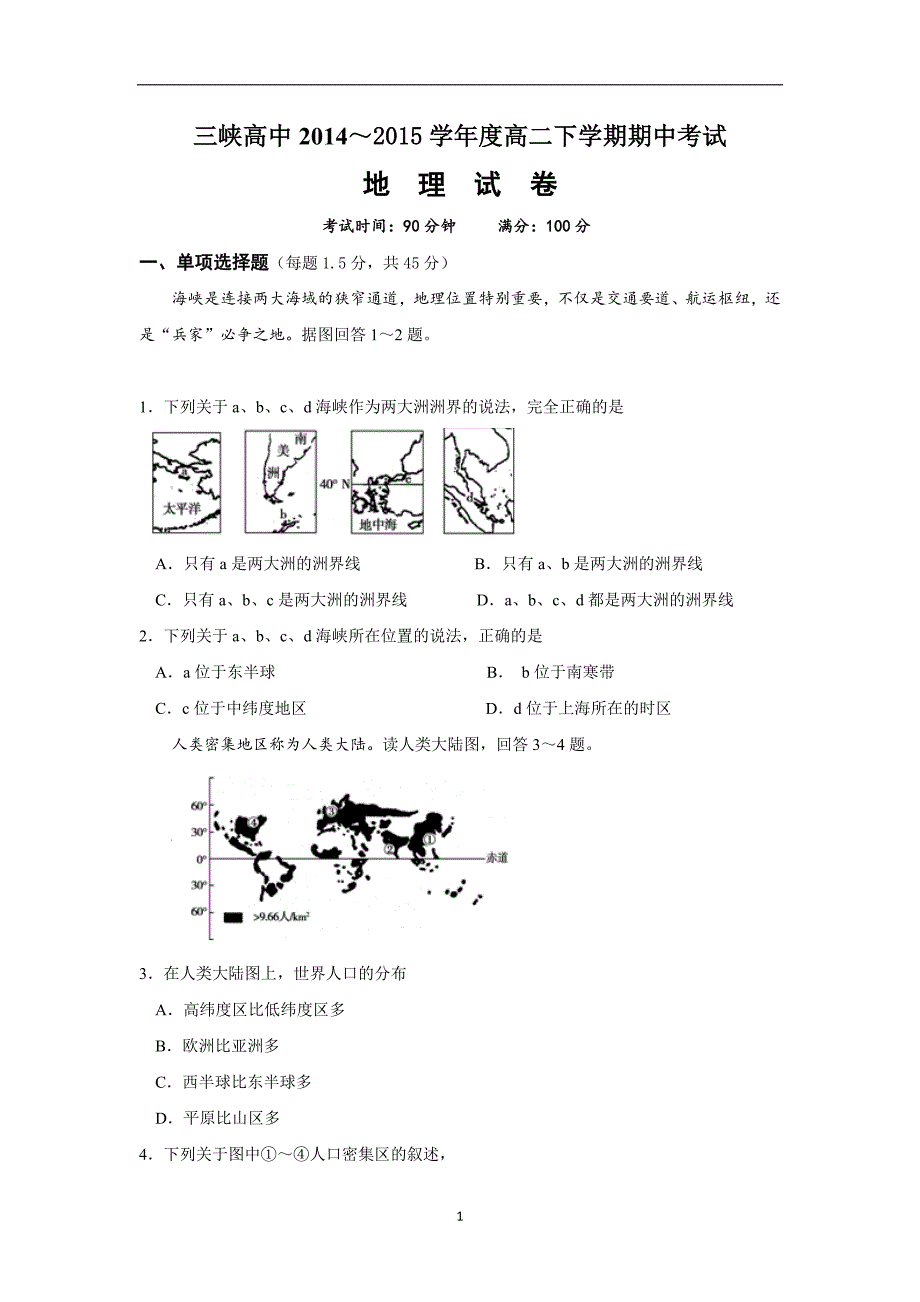 三峡高中2014～2015学年度高二下学期期中考试
地 理 试 卷
考试时间：90分钟 满分：100分
一、单项选择题（每题1.5分，共45分）
海峡是连接两大海域的狭窄通道，地理位置特别重要，不仅是交通要道、航运枢纽，还
是“兵家”必争之地。据图回答1～2题。
1．下列关于a、b、c、d海峡作为两大洲洲界的说法，完全正确的是
a
太平洋
南
美
洲
b
40° N
c
地中海
d
A．只有a是两大洲的洲界线 B．只有a、b是两大洲的洲界线
C．只有a、b、c是两大洲的洲界线 D．a、b、c、d都是两大洲的洲界线
2．下列关于a、b、c、d海峡所在位置的说法，正确的是
A．a位于东半球 B． b位于南寒带
C．c位于中纬度地区 D．d位于上海所在的时区
人类密集地区称为人类大陆。读人类大陆图，回答3～4题。
60°
30°
0°
30°
60°
④
③
②
①
赤道
>9.66人/km²
3．在人类大陆图上，世界人口的分布
A．高纬度区比低纬度区多
B．欧洲比亚洲多
C．西半球比东半球多
D．平原比山区多
4．下列关于图中①～④人口密集区的叙述，
1